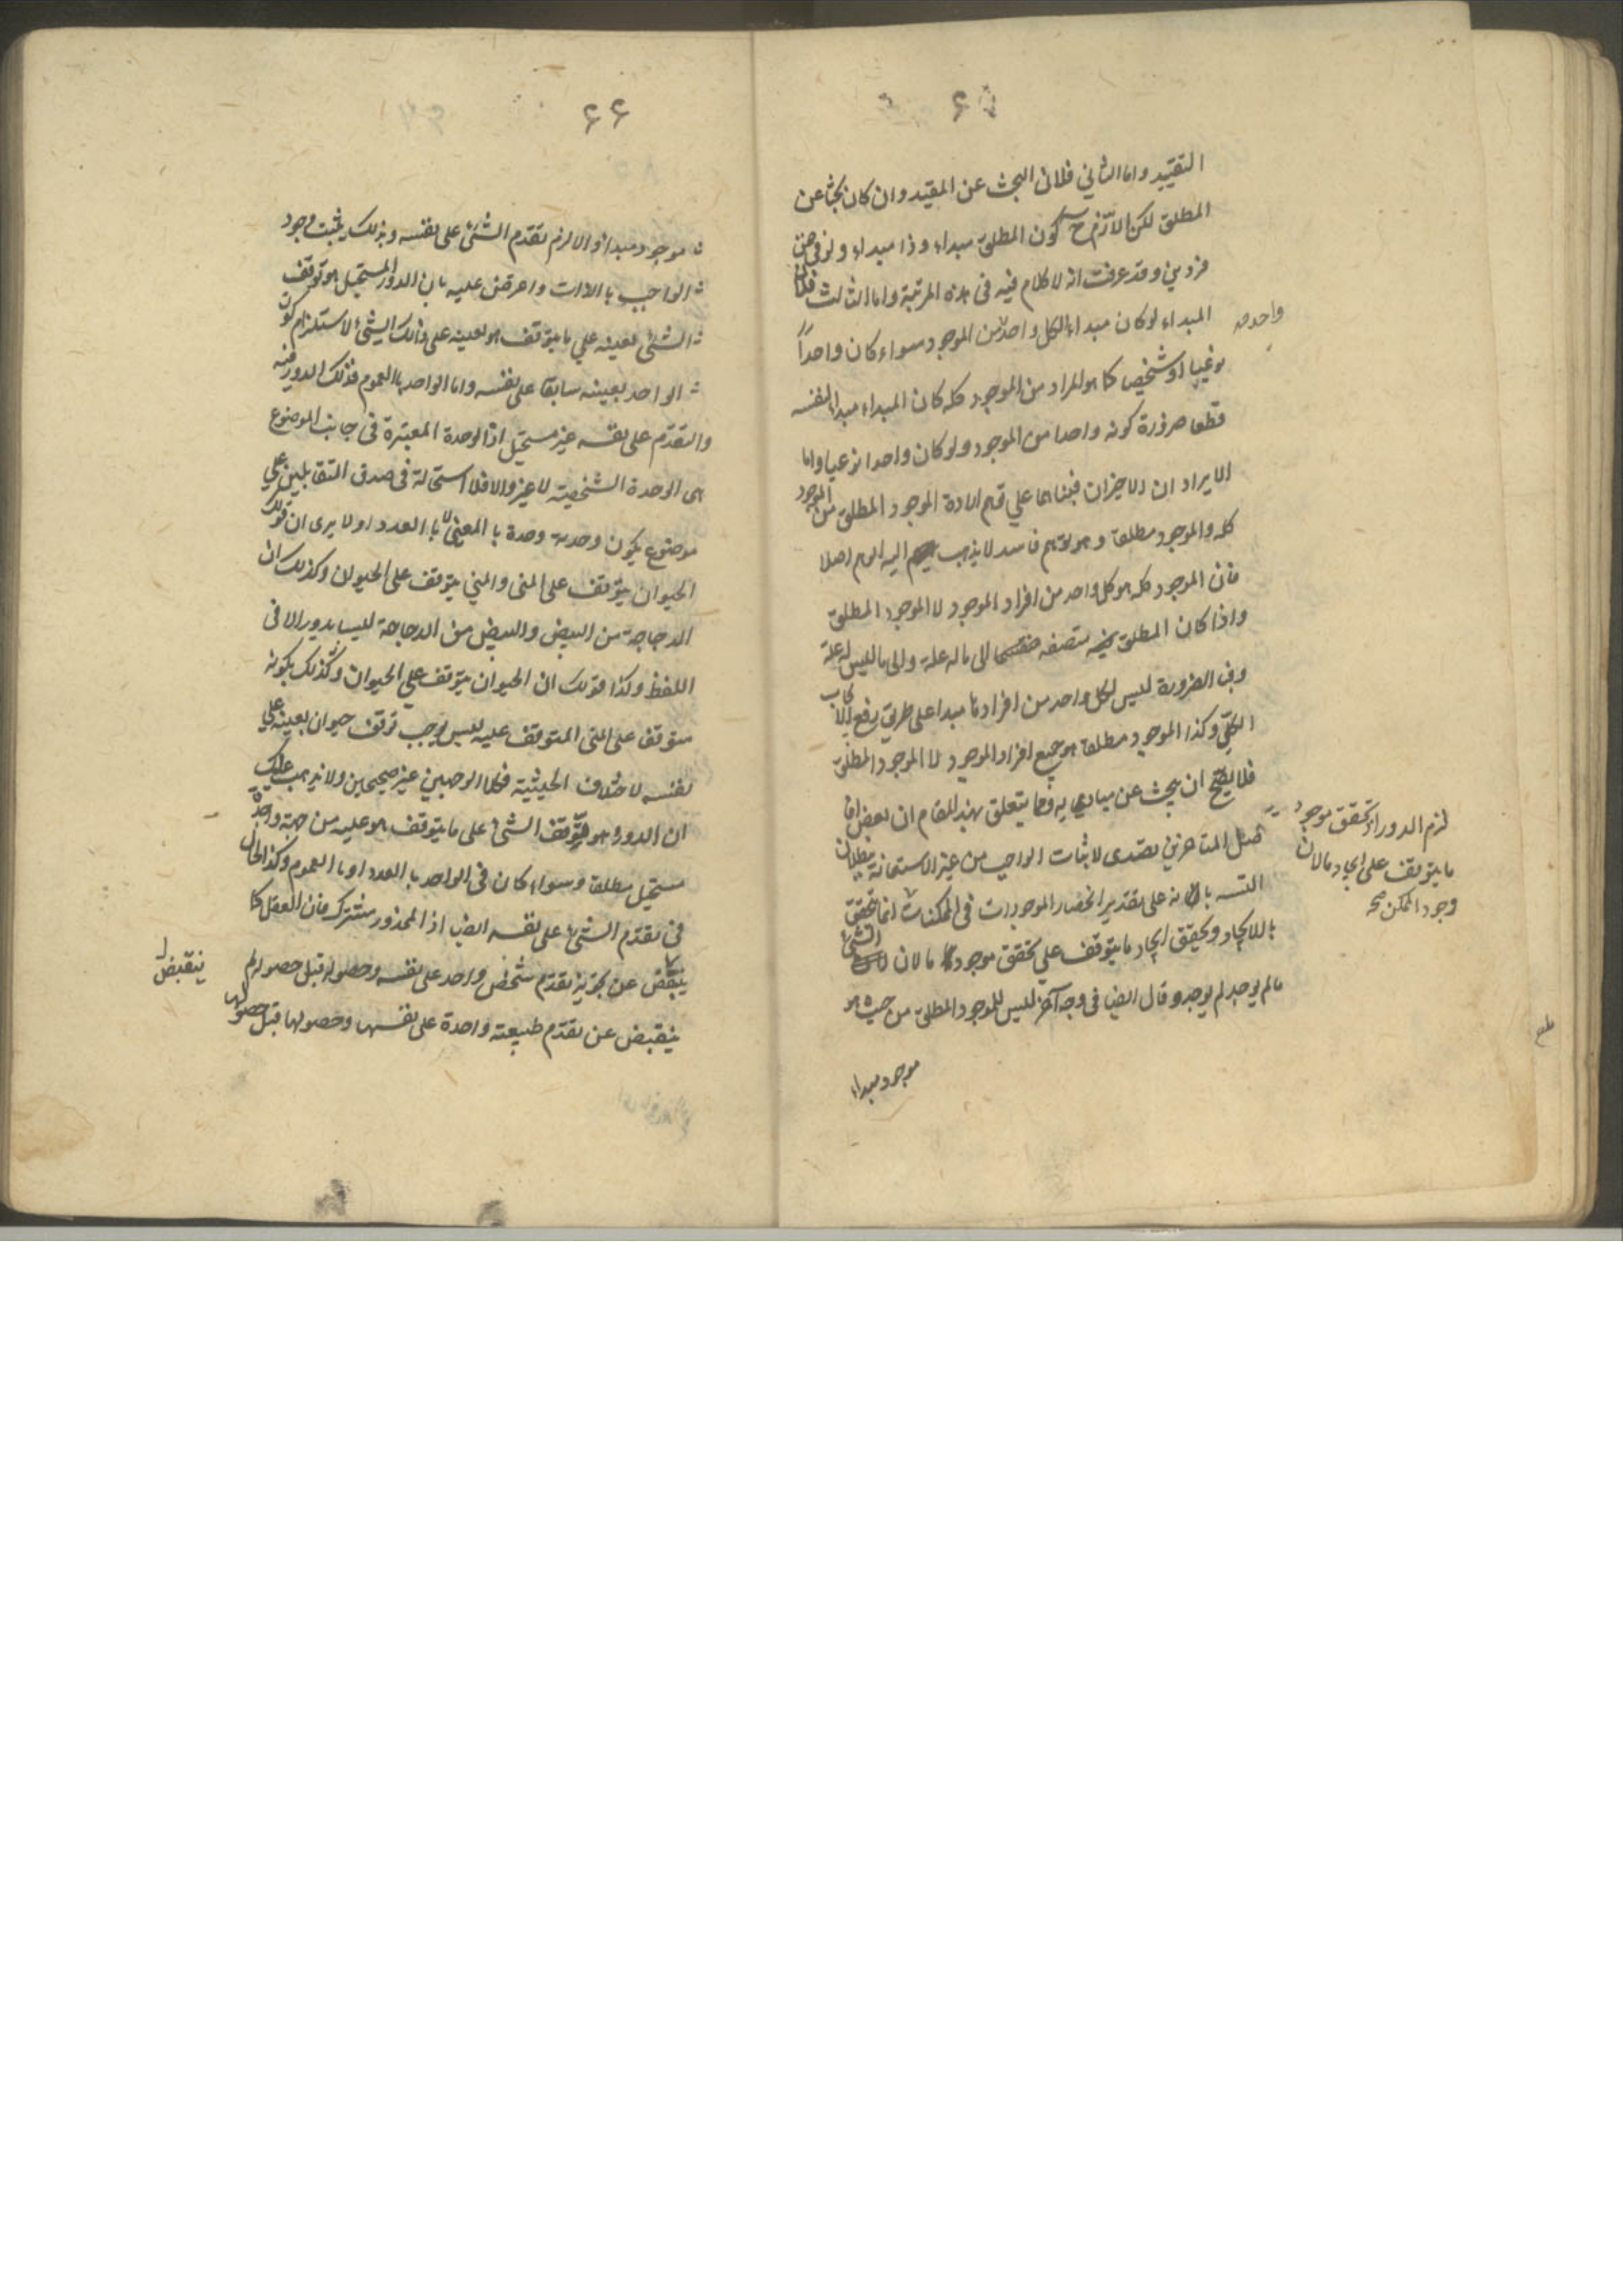 ۶۵
التقييد واما الثاني فلان البحث عن المقيد وان كان بحثا عن
المطلق لكن اللازم ح كون المطلق مبداء وذا مبداء ولو في ضمن
فردين وقد عرفت انه لا كلام فيه في هذه المرتبة واما الثالث فلان
المبداء لو كان مبداء لكل واحد من الموجود سواء كان واحداً
نوعيا او شخصيا كما هو المراد من الموجود كله كان المبداء مبدا لنفسه
قطعا ضرورة كونه واحدا من الموجود ولو كان واحدا نوعيا واما
الايراد ان الاخيران فبناهما علي فهم ارادة الموجود المطلق من الموجود
كله والموجود مطلقا وهو توهم فاسد لا يذهب اليه الوهم اصلا
فان الموجود كله هو كل واحد من افراد الموجود لا الموجود المطلق
واذا كان المطلق الى ما له علة والى ما ليس له علة
وفي الضرورة ليس لكل واحد من افراده مبدا على طريق رفع الايجاب
الكلي وكذا الموجود مطلقا هو جميع افراد الموجود لا الموجود المطلق
فلا يصح ان يبحث عن مباديه ومما يتعلق بهذا المقام ان بعض افا
ضل المتاخرين تصدى لاثبات الواجب من غير الاستعانة ببطلان
التسـ بانه على تقدير انحصار الموجودات في الممكنات انما تحقق
بالايجاد وتحقيق ايجاد ما يتوقف علي تحقق موجود ما لان الشئ
ما لم يوجد لم يوجد وقال ايضا في وجه آخر ليس للموجود المطلق من حيث هو
موجود مبداء
واحد
لزم الدور اذ تحقق موجود
ما يتوقف على ايجاد ما لان
وجود الممكن صح
۶۶
موجود مبدا والا لزم تقدم الشئ على نفسه وبذلك يثبت وجود
الواجب بالذات واعترض عليه بان الدور المستحيل هو توقف
الشئ بعينه علي ما يتوقف هو بعينه على ذلك الشئ لاستلزام كون
الواحد بعينه سابقا على نفسه واما الواحد بالعموم فذلك الدور فيه
والتقدم على نفسه غير مستحيل اذ الوحدة المعتبرة في جانب الموضوع
هي الوحدة الشخصية لا غير والا فلا استحالة في صدق المتقابلين علي
موضوع يكون وحدته وحدة بالمعنى لا بالعدد او لا يرى ان قولك
الحيوان يتوقف على المنى والمني يتوقف على الحيوان وكذلك ان
الدجاجة من البيض والبيض من الدجاجة ليسا بدور الا في
اللفظ وكذا قولك ان الحيوان يتوقف علي الحيوان وكذلك بكونه
متوقفا على المنى المتوقف عليه ليس يوجب توقف حيوان بعينه علي
نفسه لاختلاف الحيثية فكلا الوجهين غير صحيحين ولا يذهب عليك
ان الدور هو توقف الشئ على ما يتوقف هو عليه من جهة واحدة
مستحيل مطلقا وسواء كان في الواحد بالعدد او بالعموم وكذا الحال
في تقدم الشئ على نفسه ايضا اذ المحذور مشترك فان العقل كما
ينقبض عن تجويز تقدم شخص واحد على نفسه وحصوله قبل حصوله
ينقبض عن تقدم طبيعة واحدة على نفسها وحصولها قبل حصولها
ينقبض